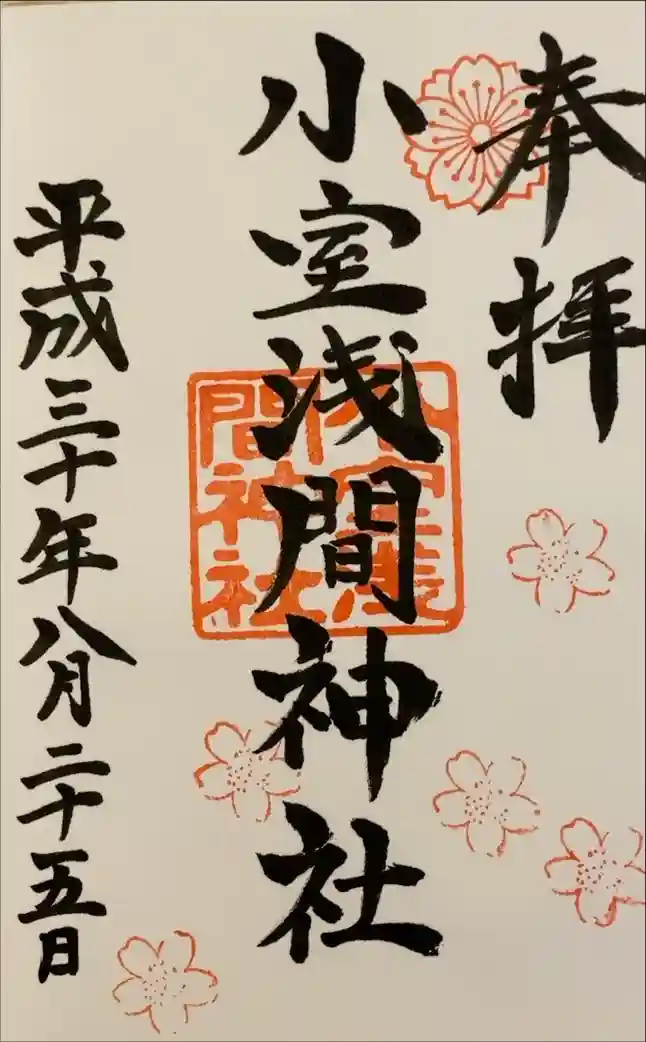 奉拝
小室浅間神社
小室浅
間神社
平成三十年八月二十五日